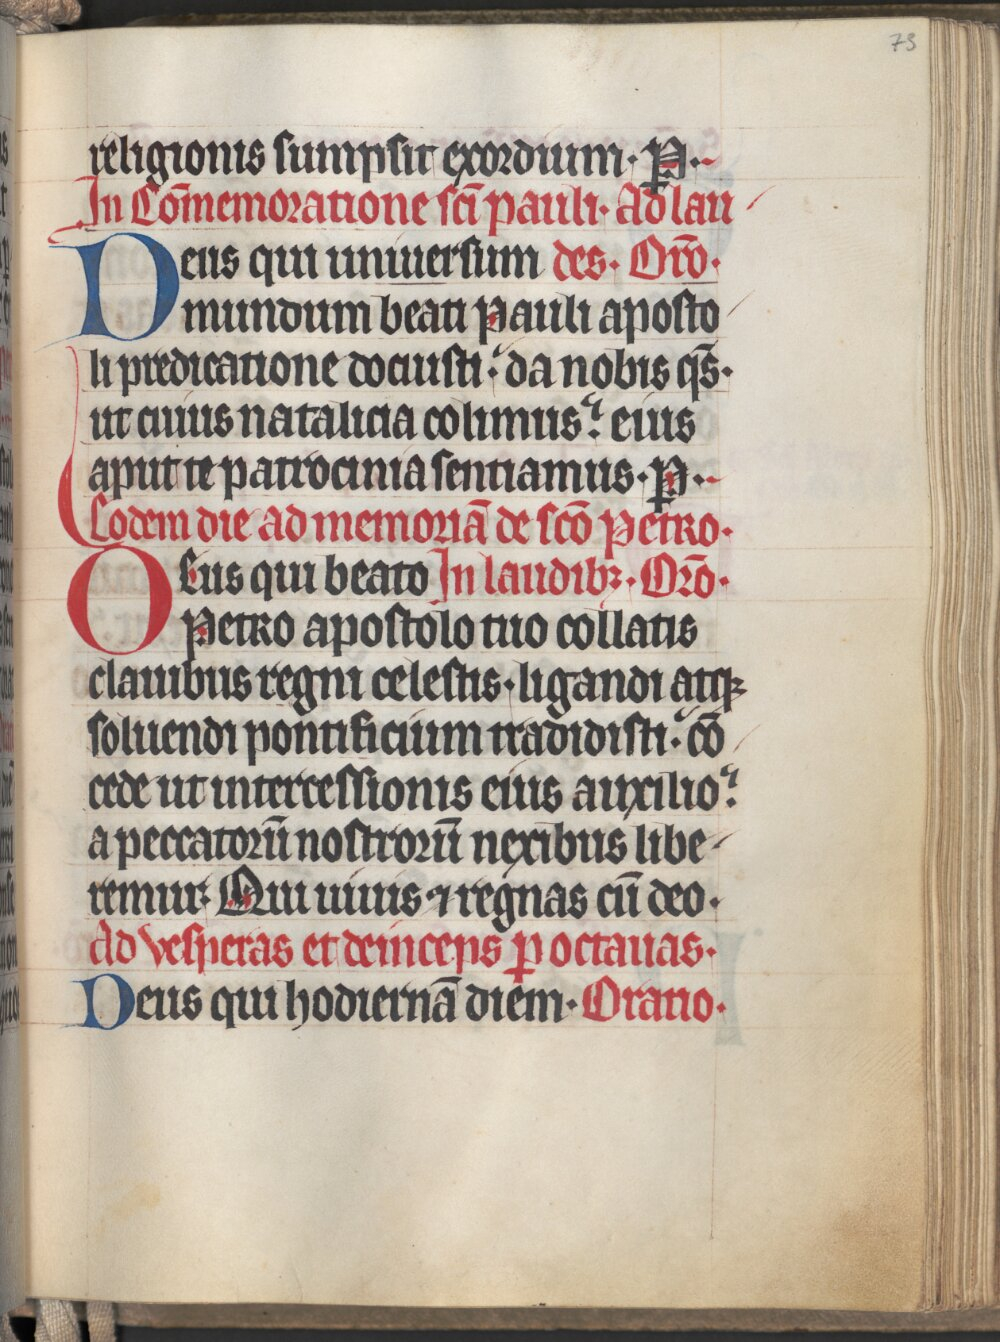 73
religionis sumpsit exordium · P̲ ·
In Cōmemoratione scī pauli · Ad lau
Deus qui uniuersum des · Orō ·
mundum beati Pauli aposto
li predicatione docuisti · da nobis qs̄ ·
ut cuius natalicia colimus · eius
aput te patrocinia sentiamus · P̲ ·
Eodem die ad memoriā de scō Petro ·
Deus qui beato In laudibꝫ · Orō ·
Petro apostolo tuo collatis
clauibus regni celestis · ligandi atqꝫ
soluendi pontificium tradidisti · cō
cede ut intercessionis eius auxilio ·
a peccatorū nostrorū nexibus libe
remur · Qui uiuis ⁊ regnas cū deo ·
Ad vesperas et deinceps ꝑ octauas ·
Deus qui hodiernā diem · Oratio ·